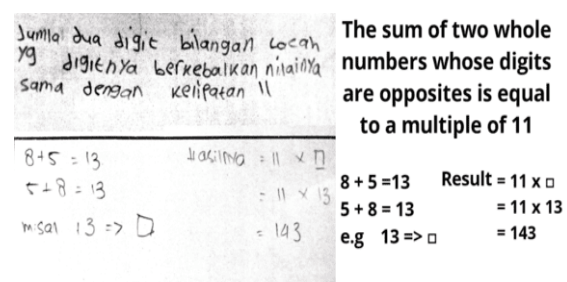 Jumla dua digit bilangan cocah
yg digitnya berkebalikan nilainya
sama dengan kelipatan 11
8+5 = 13
5+8 = 13
misal 13 => □
Hasilnya = 11 x □
= 11 x 13
= 143
The sum of two whole
numbers whose digits
are opposites is equal
to a multiple of 11
8 + 5 =13
5 + 8 = 13
e.g 13 => □
Result = 11 x □
= 11 x 13
= 143